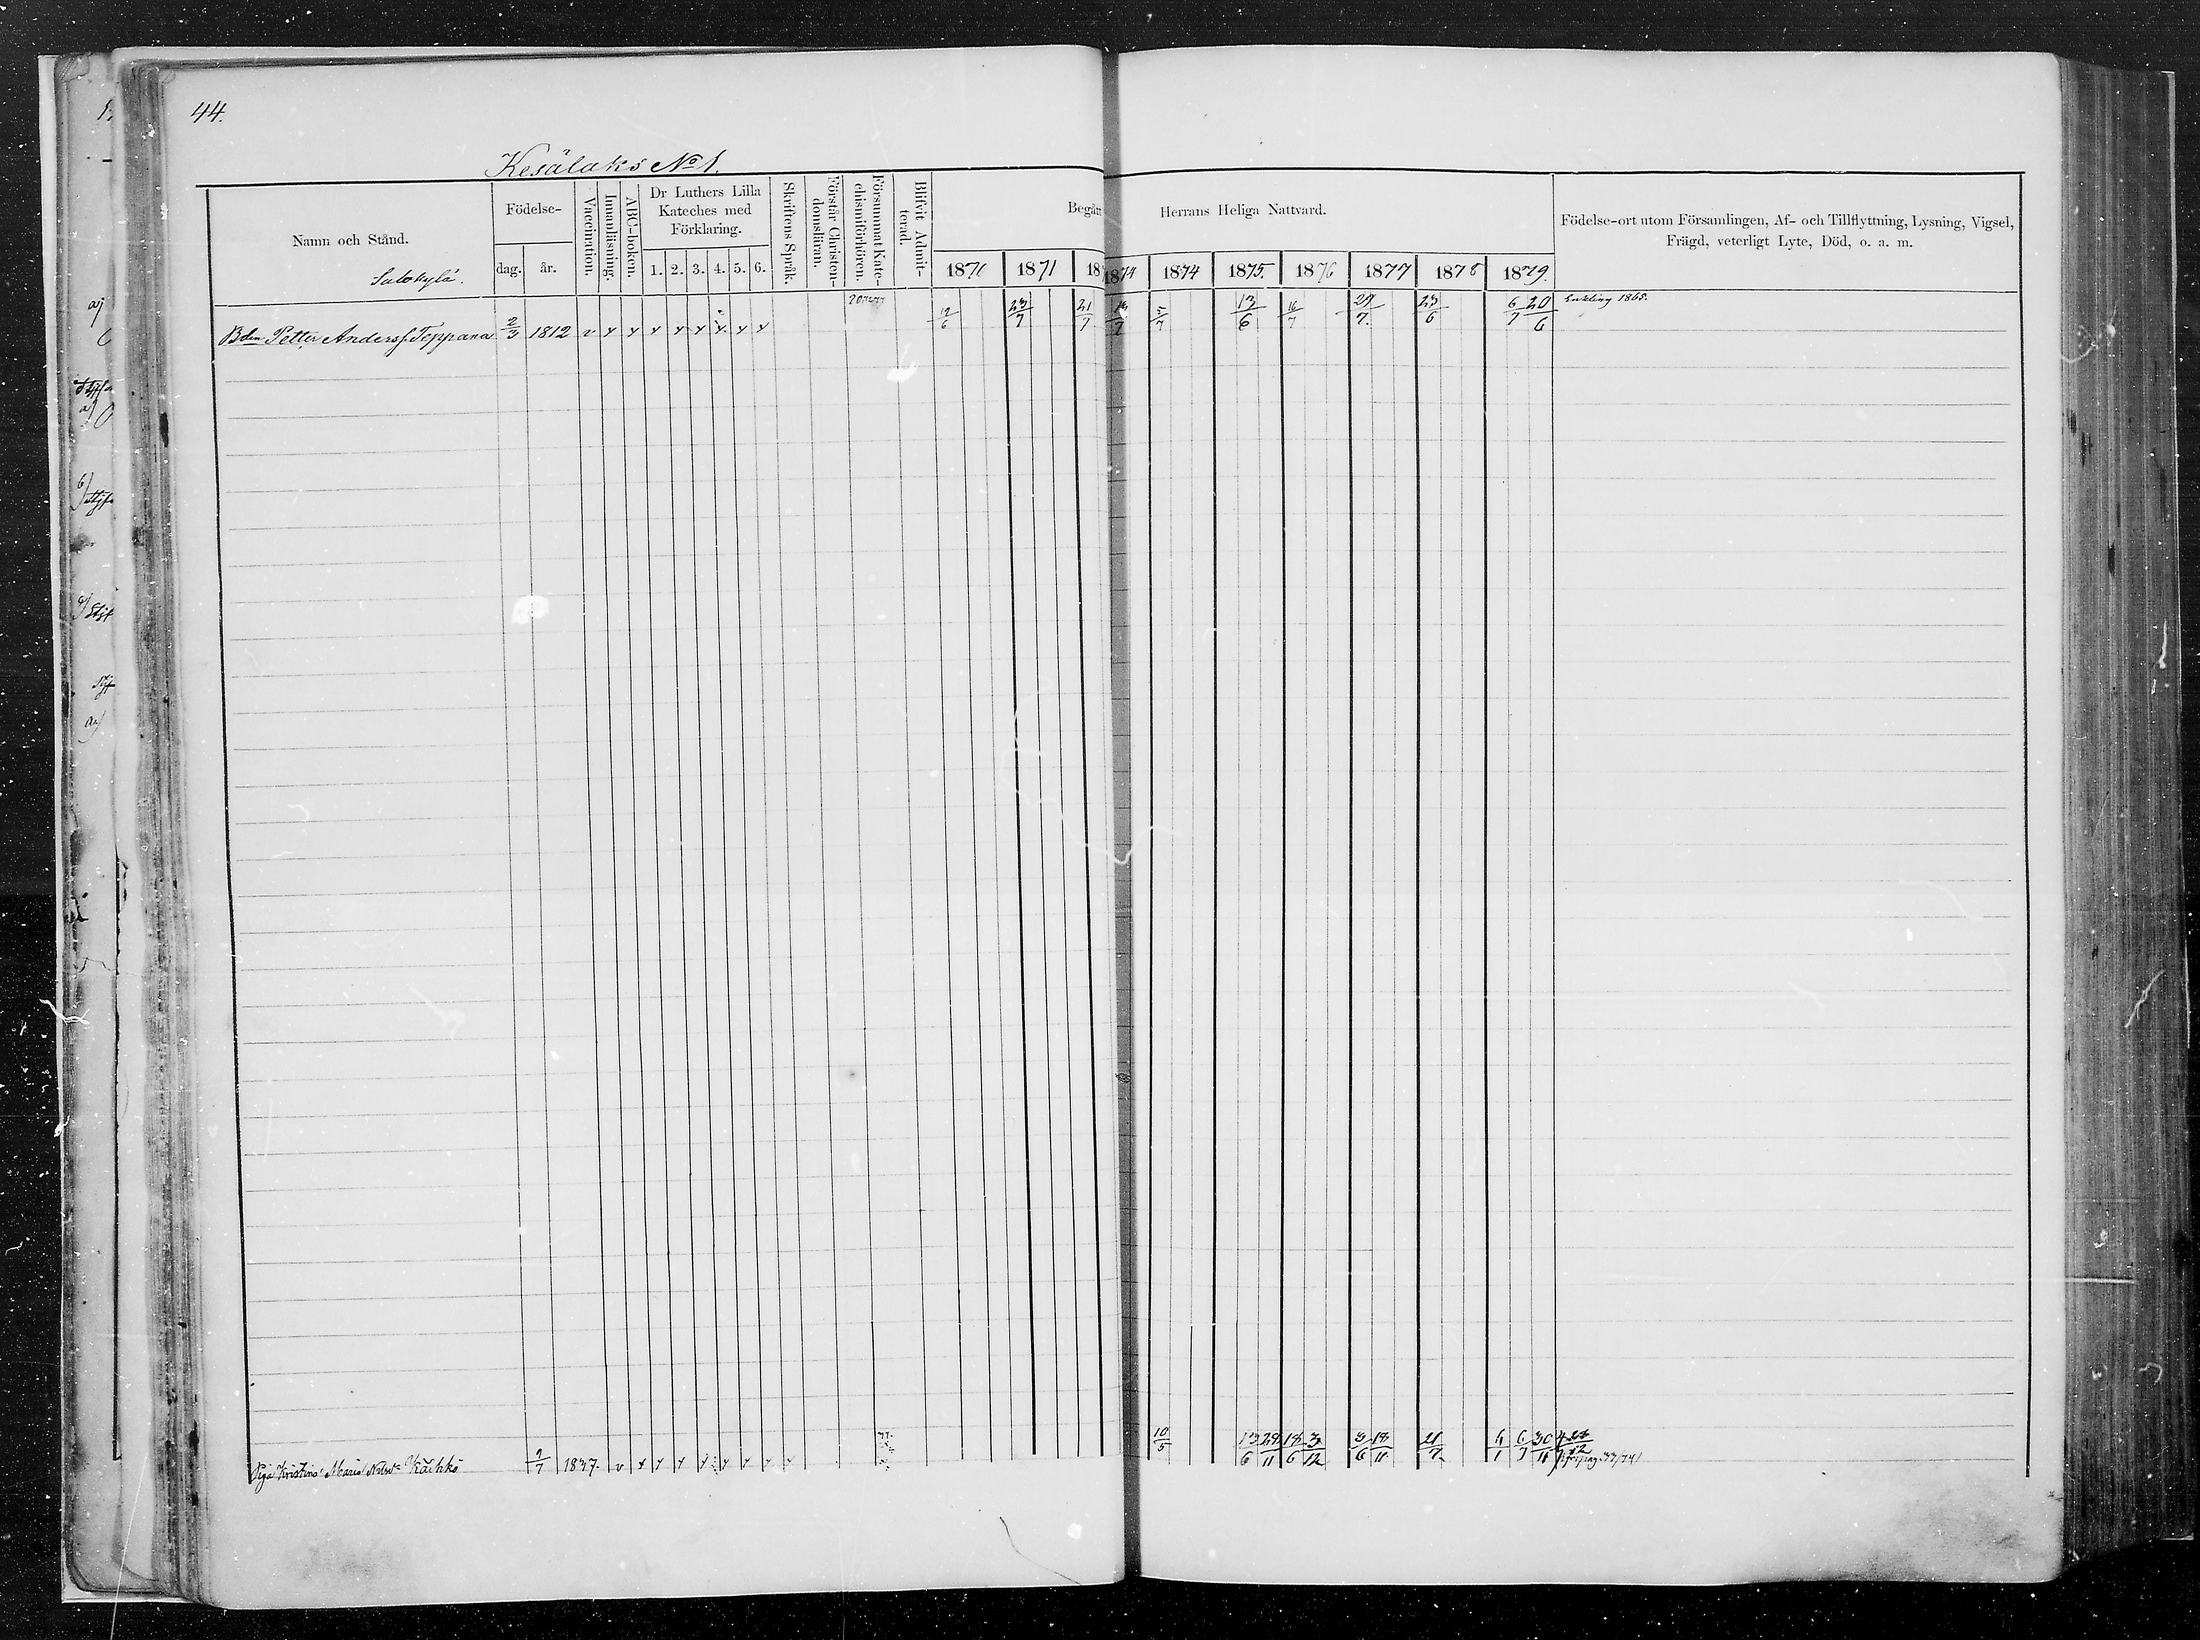 44.
Kesälaks No 1.
Namn och Stånd.
Födelse-
dag. år.
Vaccination.
Innanläsning.
ABC-boken.
Dr Luthers Lilla
Kateches med
Förklaring.
1. 2. 3. 4. 5. 6.
Skriftens Språk.
Förstår Christen-
domsläran.
Försummat Kate-
chismiförhören.
Blifvit Admit-
terad.
Begått Herrans Heliga Nattvard.
1871 1871 1874 1875. 1876 1877 1878 1879.
Födelse-ort utom Församlingen, Af- och Tillflyttning, Lysning, Vigsel,
Frägd, veterligt Lyte, Död, o. a. m.
Salokylä.
Petter Anderss. Teppana 2/3 1812 v x x x x x x x x 12/6 23/7 21/7 5/7 13/6 16/7 29/7. 23/6 6/7 20/6 Enkling 1865.
Piga Kristina Maria 1837. v x x x x x x x x 10/5 13/6 28/11 18/6 3/12 3/6 18/11 21/7 6/1 6/7 30/11